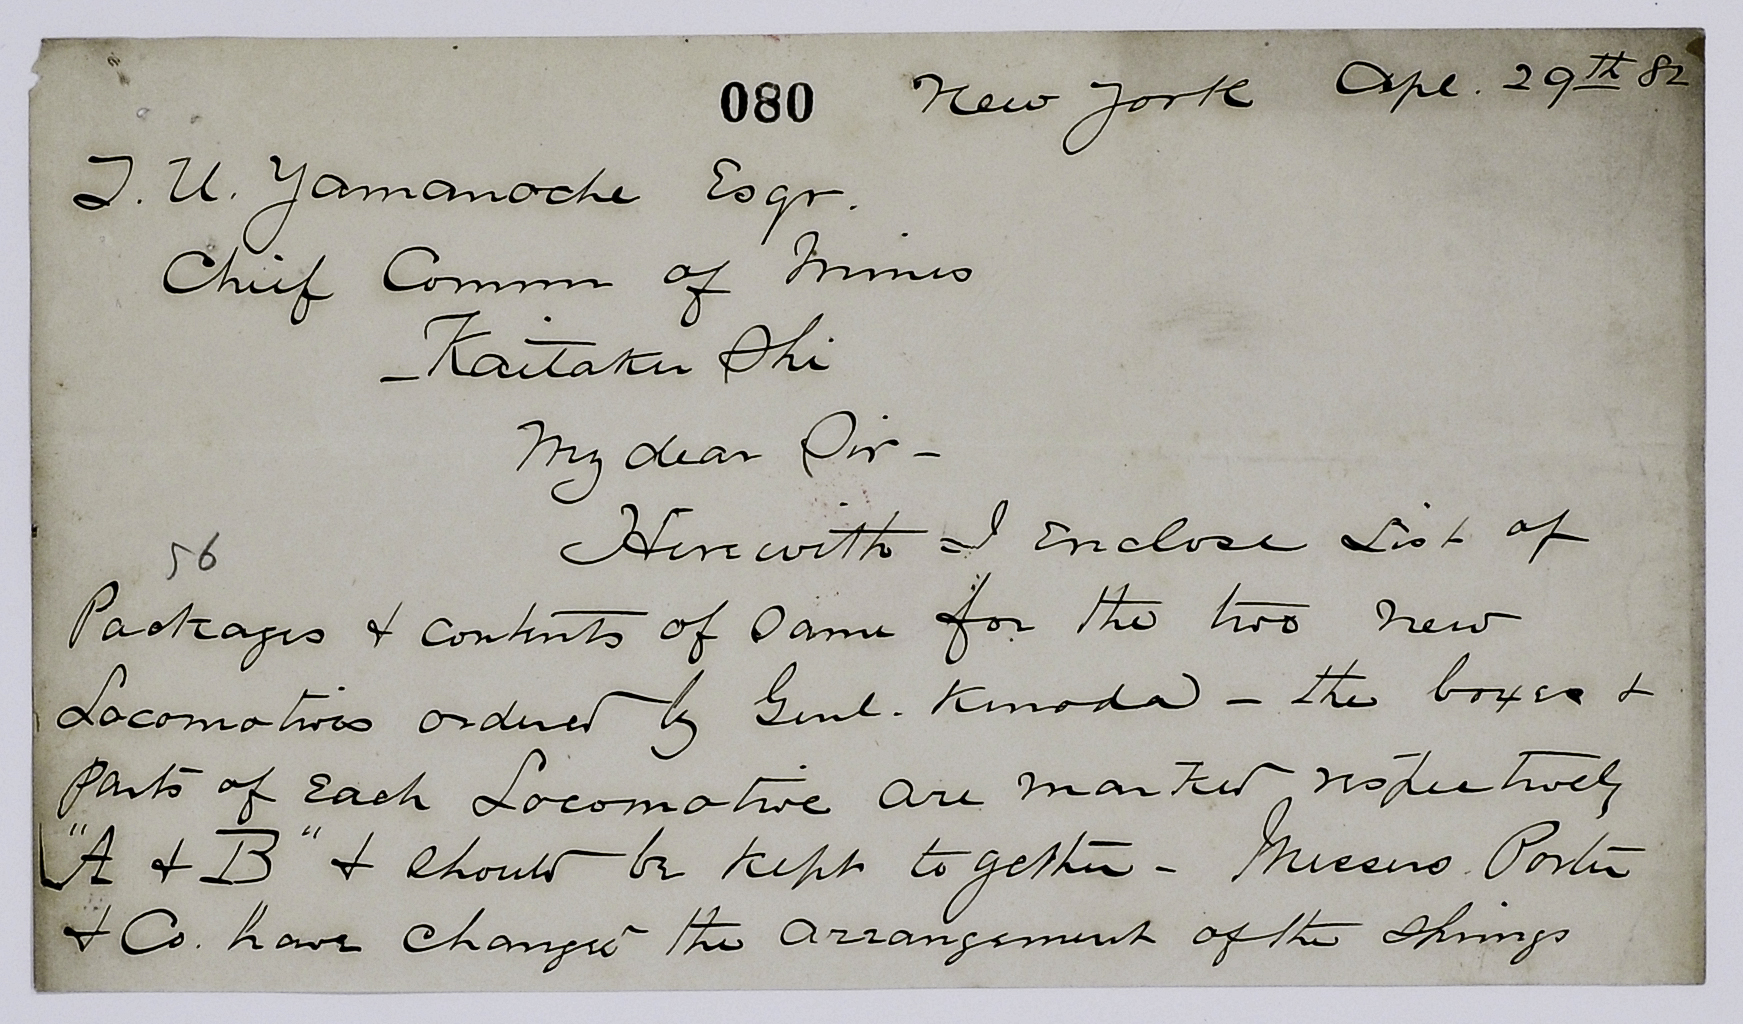 080 New York Apl. 29th 82
T. U. Yamanoche Esqr.
Chief Commr of Mines
- Kaitaku Shi
My dear Sir -
Herewith I Enclose List of
56
Packages & contents of same for the two new
Locomotives ordered by Genl. Kuroda - the boxes &
parts of Each Locomotive are marked respectively
"A & B" & should be kept together - Messers. Porter
& Co. have changed the arrangement of the springs